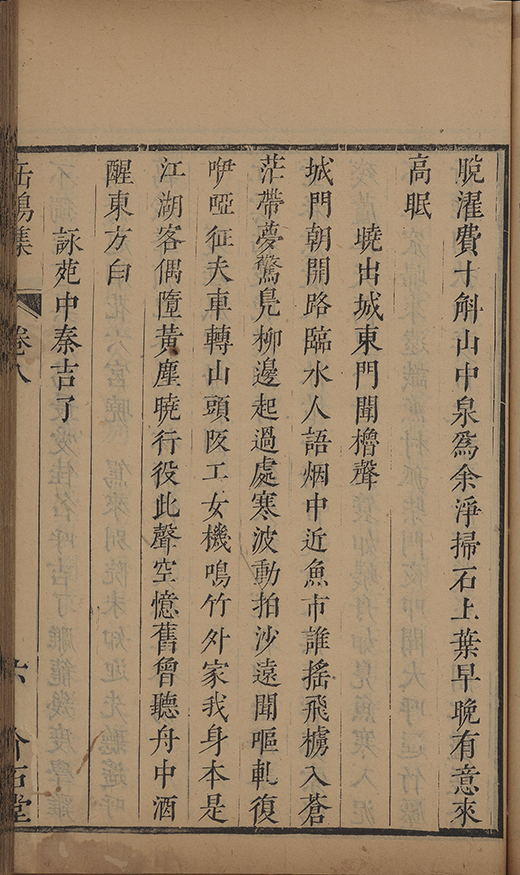 脫濯費十斛山中泉爲余淨掃石上葉早晚有意來
高眠
曉出城東門聞櫓聲
城門朝開路臨水人語烟中近魚市誰搖飛櫓入蒼
茫帶夢驚鳧柳邊起過處寒波動拍沙遠聞嘔軋復
咿啞征夫車轉山頭阪工女機鳴竹外家我身本是
江湖客偶墮黃塵曉行役此聲空憶舊曾聽舟中酒
醒東方白
詠苑中秦吉了
卷八
六